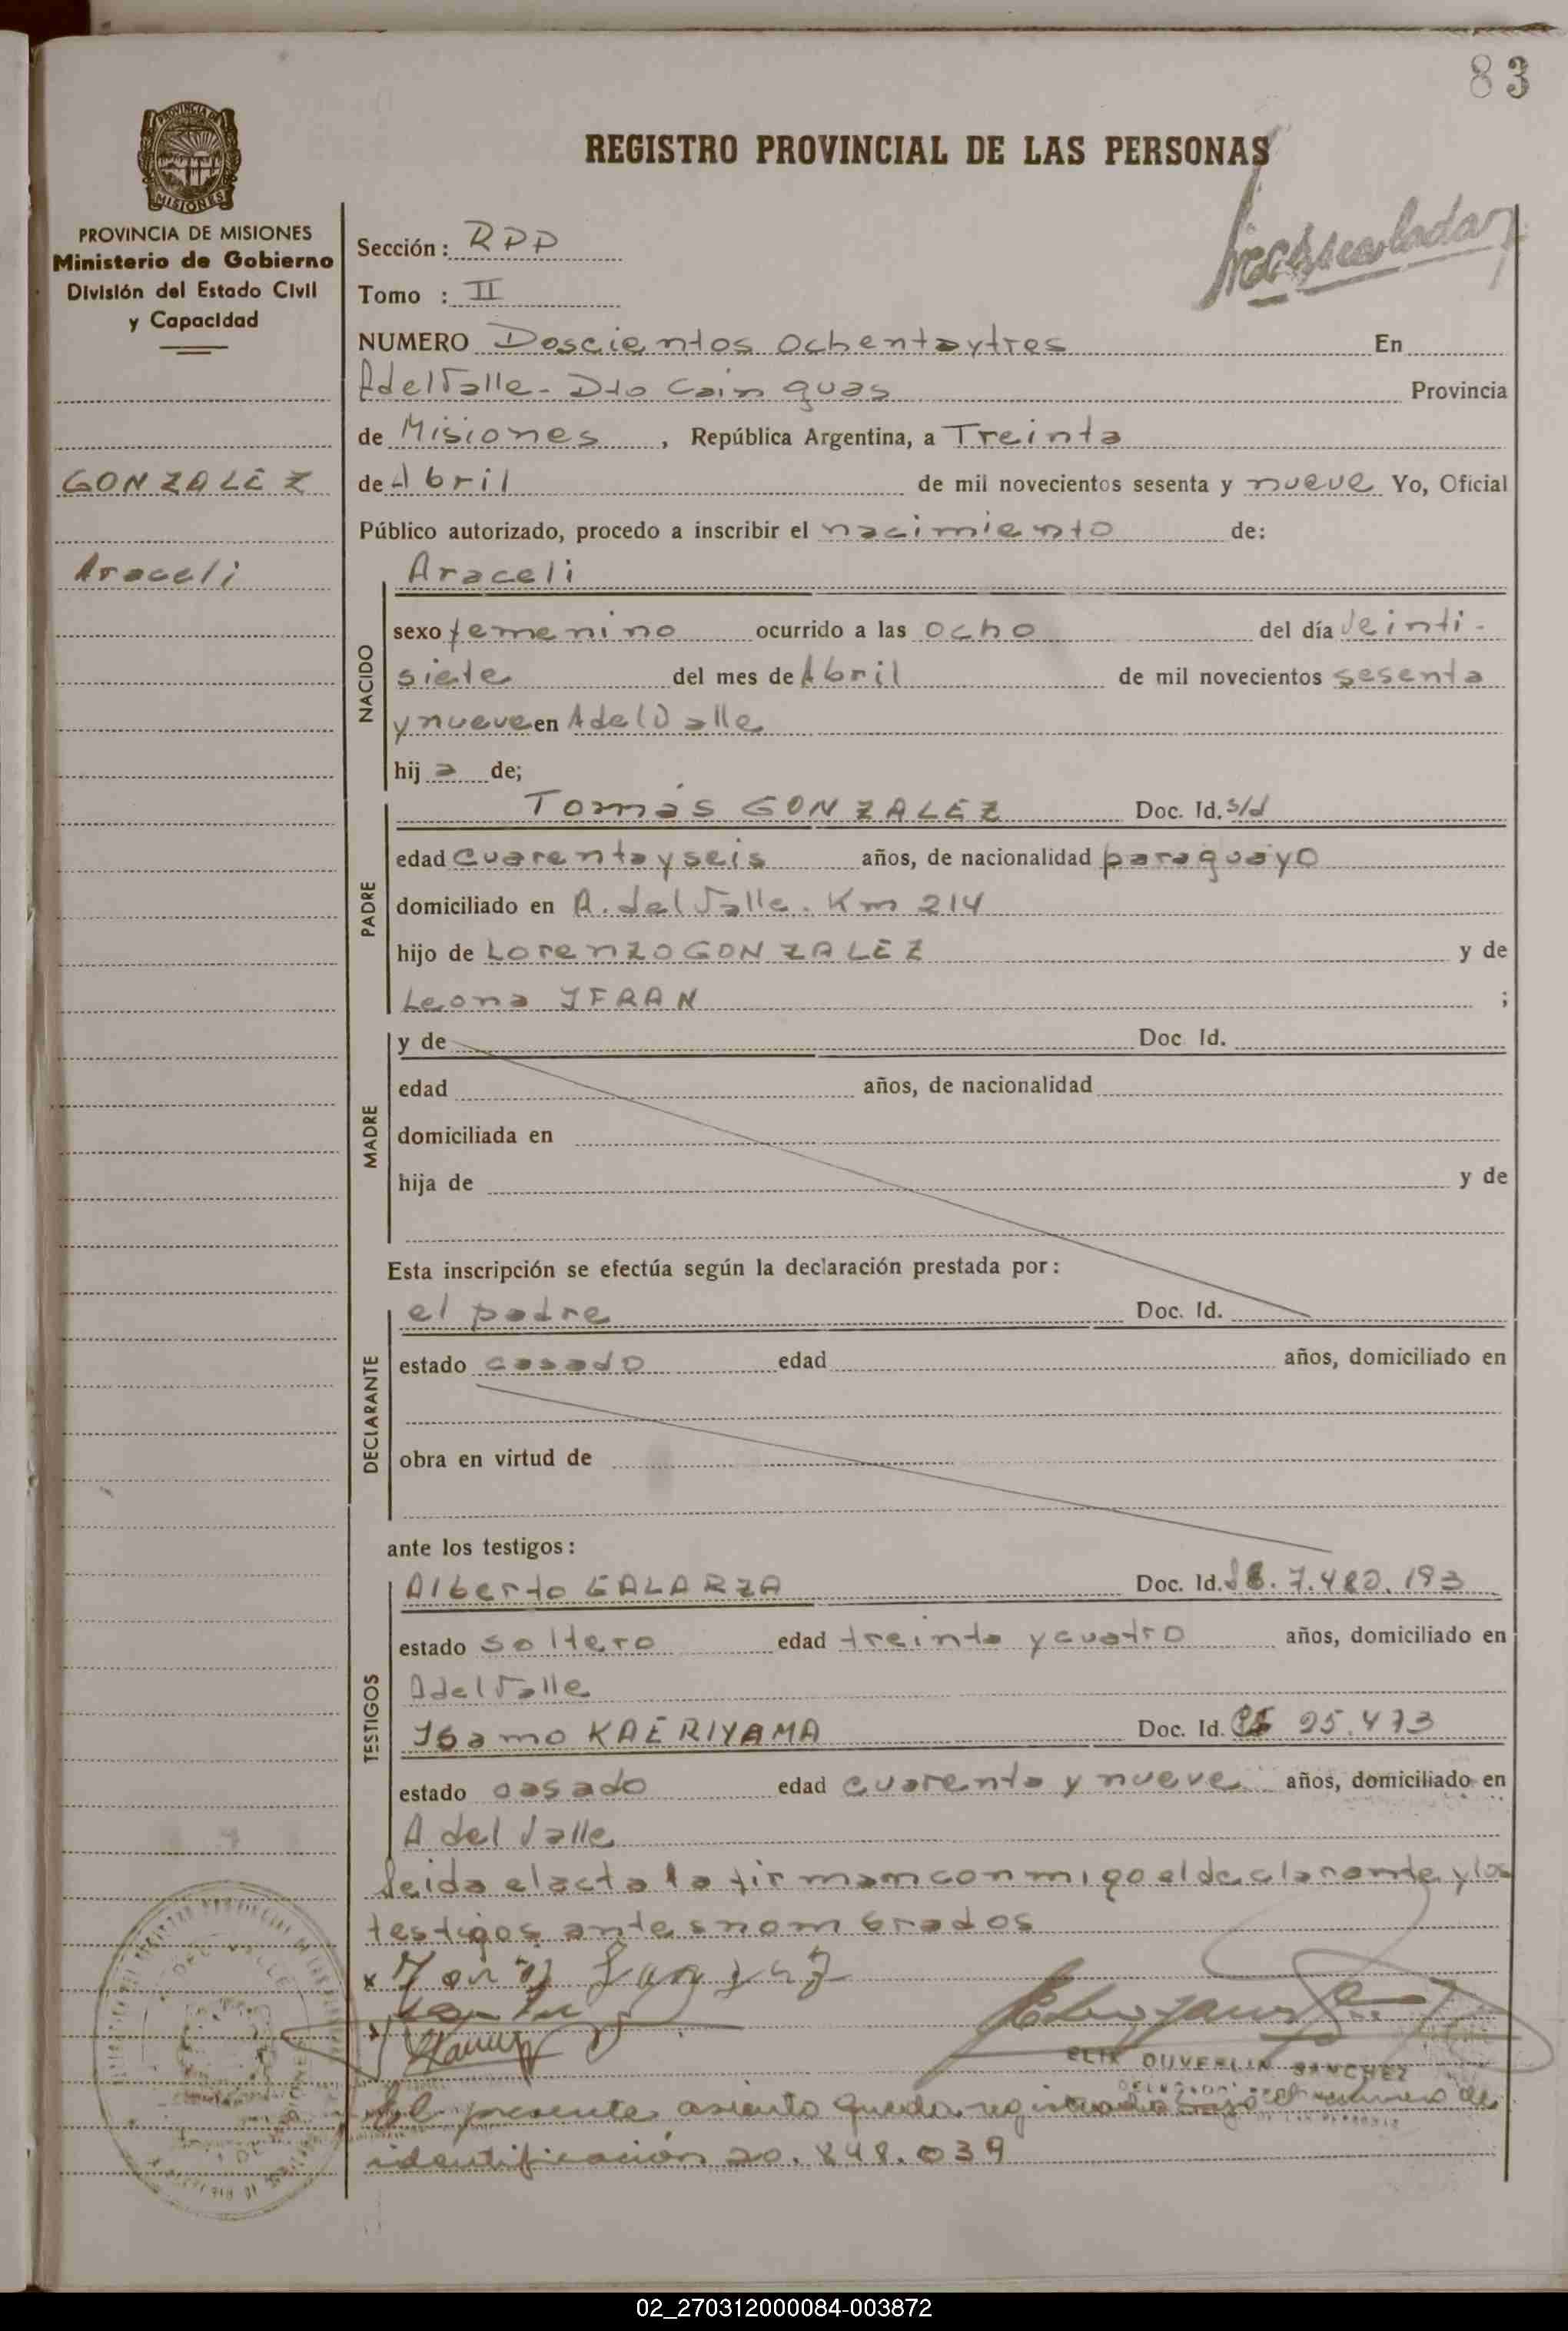 83
REGISTRO PROVINCIAL DE LAS PERSONAS
PROVINCIA DE
MISIONES
PROVINCIA DE MISIONES
Ministerio de Gobierno
División del Estado Civil
y Capacidad
GONZALEZ
Araceli
Sección: RPP
Tomo : II
NUMERO Doscientos ochentaytres En
AdelValle - Dto Cainguas Provincia
de Misiones, República Argentina, a Treinta
de Abril de mil novecientos sesenta y nueve Yo, Oficial
Público autorizado, procedo a inscribir el nacimiento de:
NACIDO
Araceli
sexo femenino ocurrido a las ocho del día Veinti-
siete del mes de Abril de mil novecientos sesenta
y nueve en AdelValle
hija de;
PADRE
Tomás GONZALEZ Doc. Id. s/d
edad cuarenta y seis años, de nacionalidad paraguayo
domiciliado en A. del Valle. Km 214
hijo de Lorenzo GONZALEZ y de
Leona IFRAN ;
MADRE
y de Doc Id.
edad años, de nacionalidad
domiciliada en
hija de y de
Esta inscripción se efectúa según la declaración prestada por:
DECLARANTE
el padre Doc. Id.
estado casado edad años, domiciliado en
obra en virtud de
ante los testigos:
TESTIGOS
Alberto GALARZA Doc. Id. 7.480.193
estado soltero edad treinta y cuatro años, domiciliado en
AdelValle
Isamo KAERIYAMA Doc. Id. 25.473
estado casado edad cuarenta y nueve años, domiciliado en
A del Valle
leida el acta la firman conmigo el declarante y los
testigos antes nombrados
SANCHEZ
El presente asiento queda registrado bajo el numero de
identificación 20.848.039
02_270312000084-003872